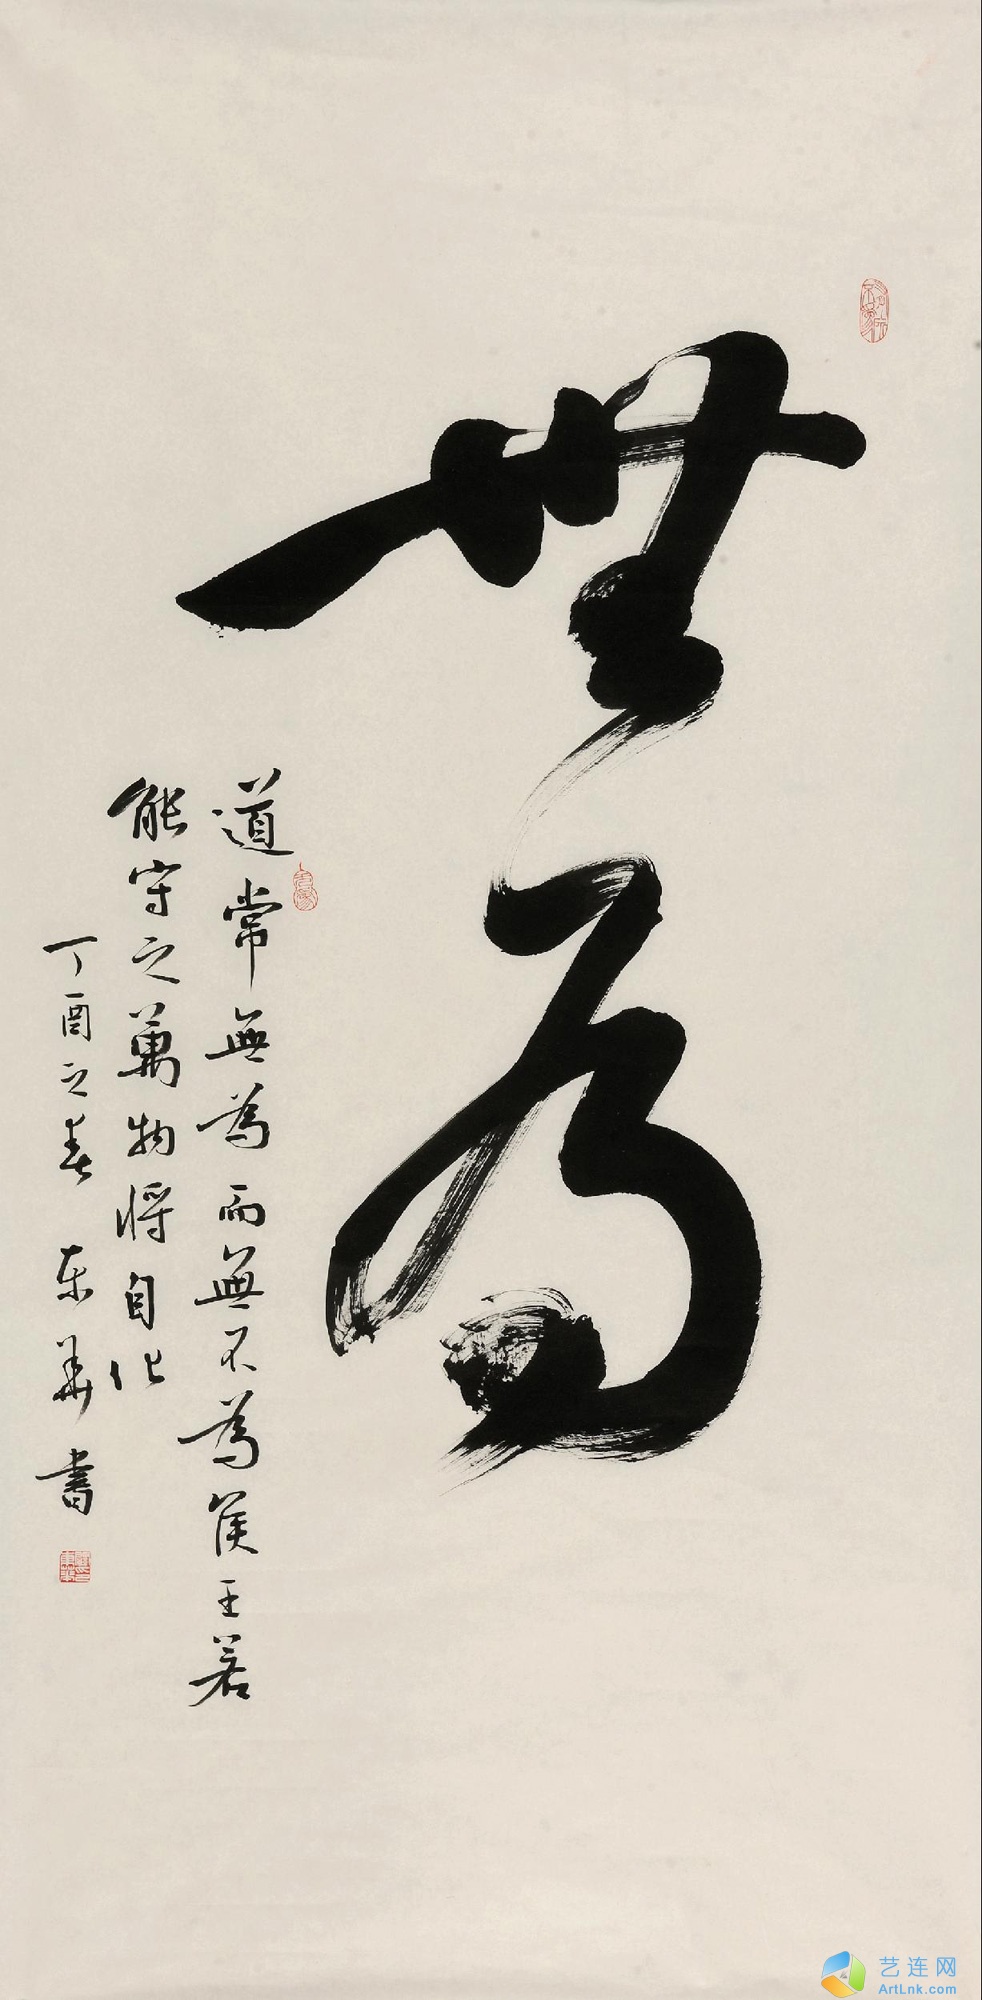 無為
道常無為而無不為侯王若
能守之萬物将自化
丁酉之春 東華書
艺连网
ArtLnk.com